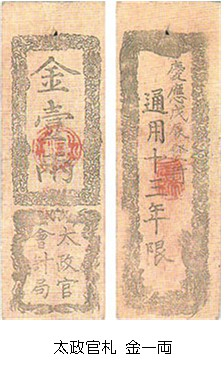 金壹兩
太政官
會計局
慶應戊辰發行
通用十三年限
太政官札 金一両